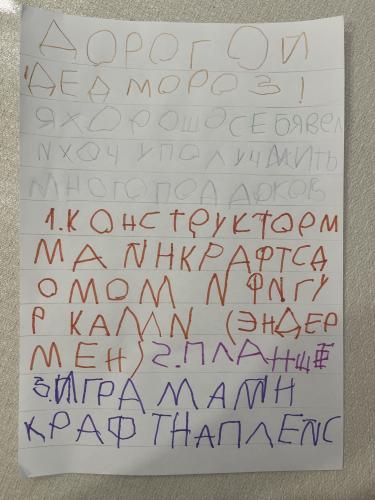 ДОРОГОЙ
ДЕД МОРОЗ!
Я ХОРОШО СЕБЯ ВЕЛ
И ХОЧУ ПОЛУЧИТЬ
МНОГО ПОДАРКОВ
1. КОНСТРУКТОР М
МАЙНКРАФТ СА
ОМОМ И ФИГУ
РКАМИ (ЭНДЕР
МЕН) 2. ПЛАНШЕ
3. ИГРА МАЙН
КРАФТ НА ПЛЕЙС